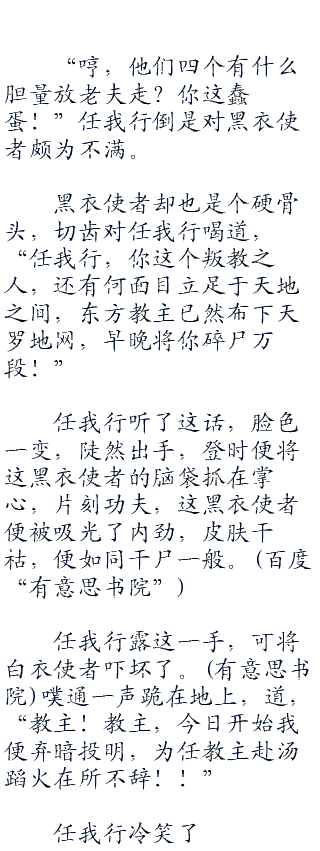 “哼，他们四个有什么
胆量放老夫走？你这蠢
蛋！”任我行倒是对黑衣使
者颇为不满。
黑衣使者却也是个硬骨
头，切齿对任我行喝道，
“任我行，你这个叛教之
人，还有何面目立足于天地
之间，东方教主已然布下天
罗地网，早晚将你碎尸万
段！”
任我行听了这话，脸色
一变，陡然出手，登时便将
这黑衣使者的脑袋抓在掌
心，片刻功夫，这黑衣使者
便被吸光了内劲，皮肤干
枯，便如同干尸一般。(百度
“有意思书院”)
任我行露这一手，可将
白衣使者吓坏了。(有意思书
院)噗通一声跪在地上，道，
“教主！教主，今日开始我
便弃暗投明，为任教主赴汤
蹈火在所不辞！！”
任我行冷笑了